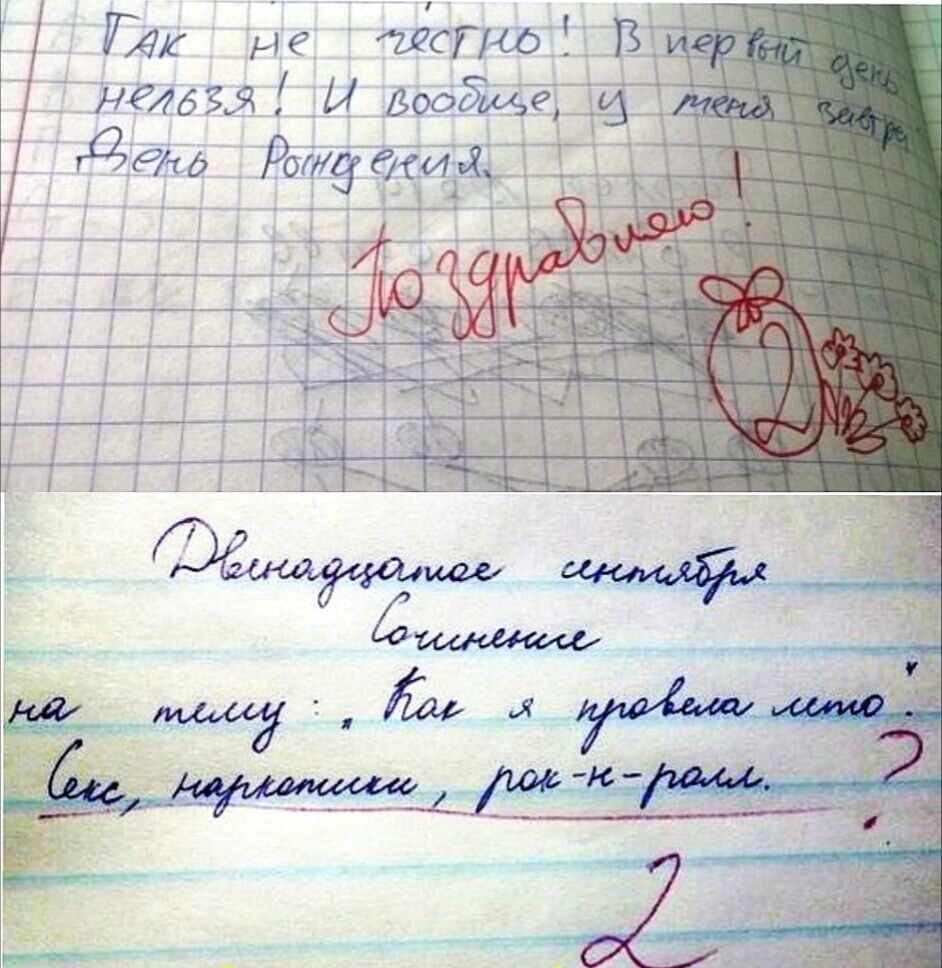 Так не честно! В первый день
нельзя! И вообще, у меня завтра
День Рождения.
Поздравляю!
2
Двенадцатое сентября
Сочинение
на тему: „Как я провела лето".
Секс, наркотики, рок-н-ролл. ?
2